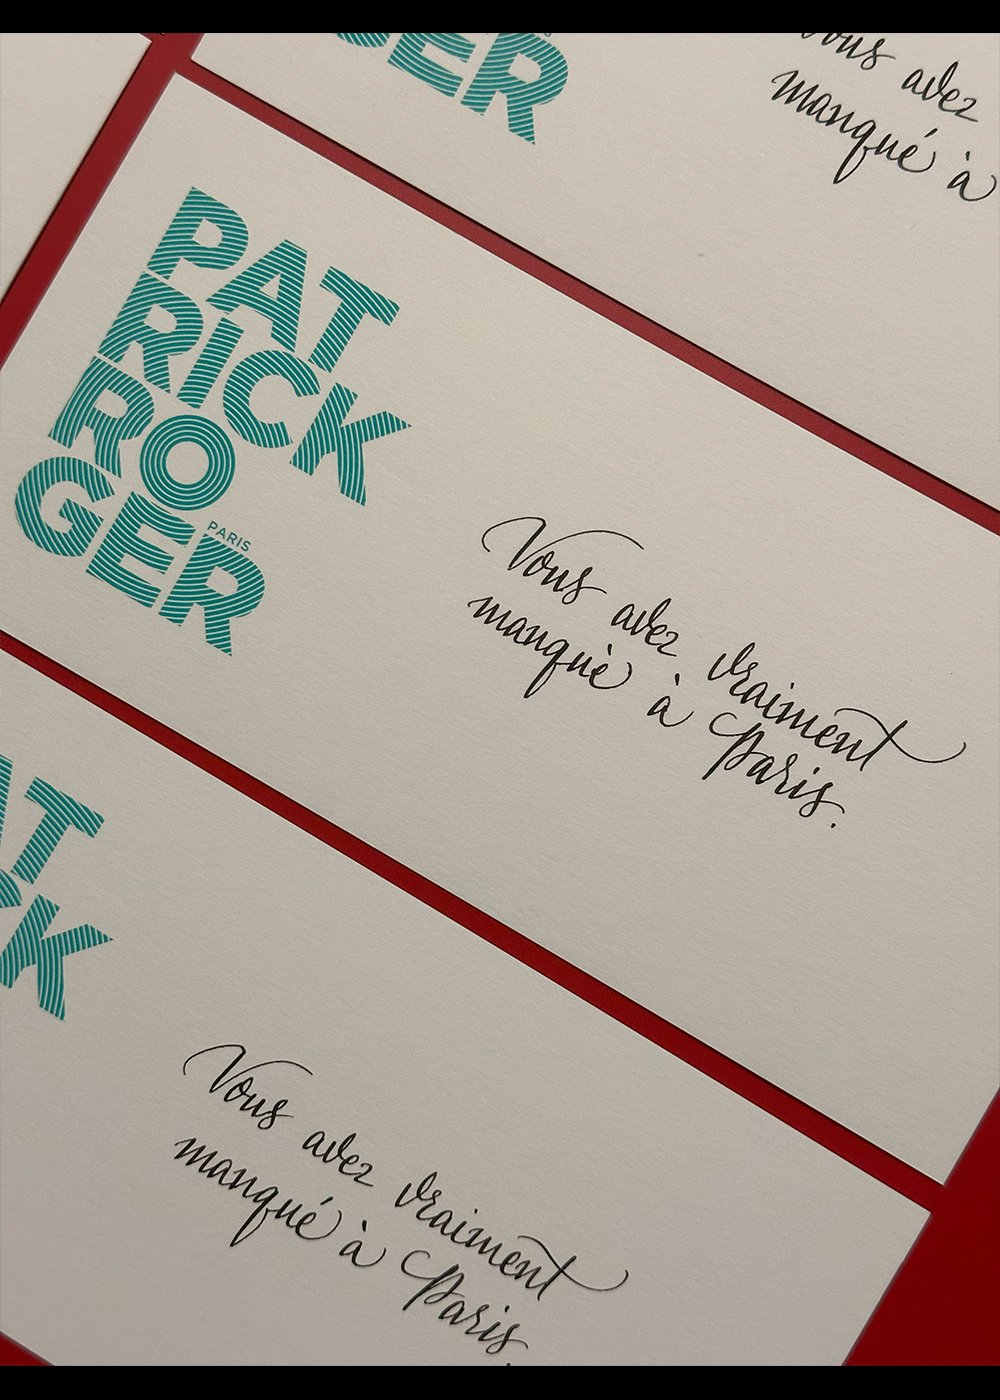 GER
Vous avez
manqué à
PAT
RICK
RO
GER
PARIS
Vous avez vraiment
manquè à Paris.
AT
CK
Vous avez vraiment
manqué à Paris.